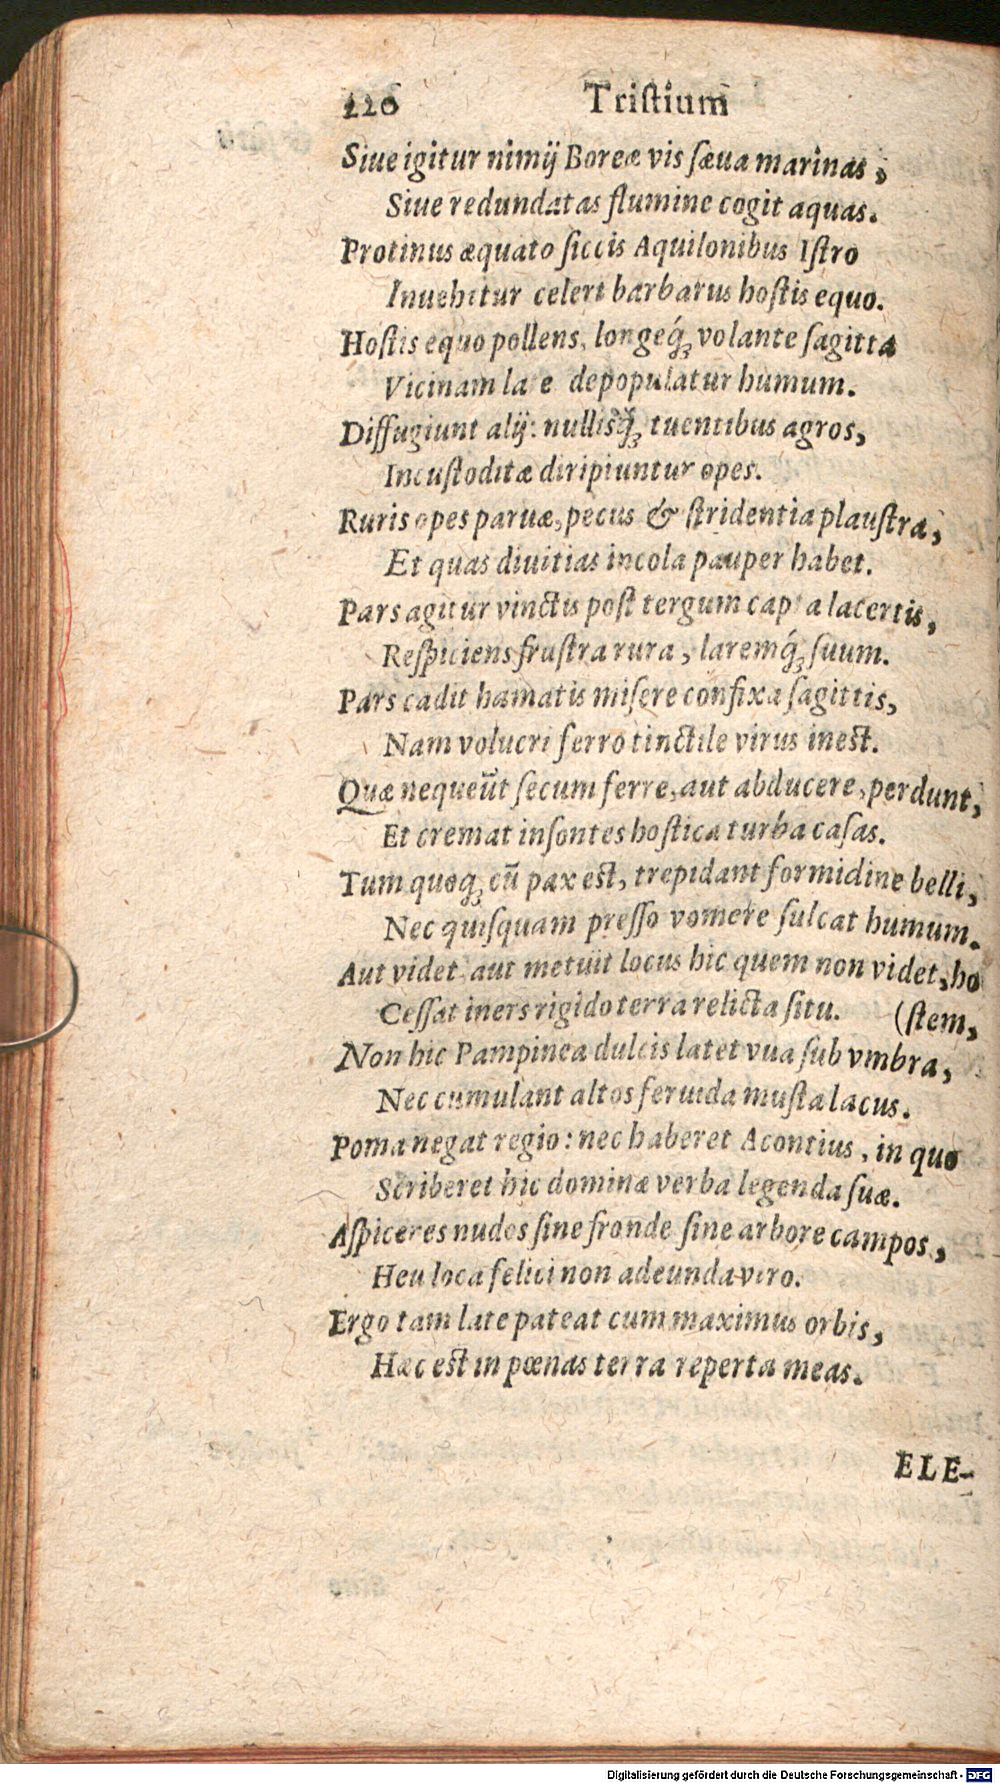 220 Triſtium
Siue igitur nimij Boreæ vis ſæua marinas,
Siue redundatas flumine cogit aquas.
Protinus æquato ſiccis Aquilonibus Iſtro
Inuehitur celeri barbarus hoſtis equo.
Hoſtis equo pollens, longeq́; volante ſagitta
Vicinam late depopulatur humum.
Diffugiunt alij: nullisq́; tuentibus agros,
Incuſtoditæ diripiuntur opes.
Ruris opes paruæ, pecus & ſtridentia plauſtra,
Et quas diuitias incola pauper habet.
Pars agitur vinctis poſt tergum capta lacertis,
Reſpiciens fruſtra rura, laremq́; ſuum.
Pars cadit hamatis miſere confixa ſagittis,
Nam volucri ferro tinctile virus ineſt.
Quæ nequeūt ſecum ferre, aut abducere, perdunt,
Et cremat inſontes hoſtica turba caſas.
Tum quoq; cū pax eſt, trepidant formidine belli,
Nec quiſquam preſſo vomere ſulcat humum.
Aut videt, aut metuit locus hic quem non videt, ho
Ceſſat iners rigido terra relicta ſitu. (ſtem,
Non hic Pampinea dulcis latet vua ſub vmbra,
Nec cumulant altos feruida muſta lacus.
Poma negat regio: nec haberet Acontius, in quo
Scriberet hic dominæ verba legenda ſuæ.
Aſpiceres nudos ſine fronde ſine arbore campos,
Heu loca felici non adeunda viro.
Ergo tam late pateat cum maximus orbis,
Hæc eſt in pœnas terra reperta meas.
ELE-
Digitalisierung gefördert durch die Deutsche Forschungsgemeinschaft - DFG